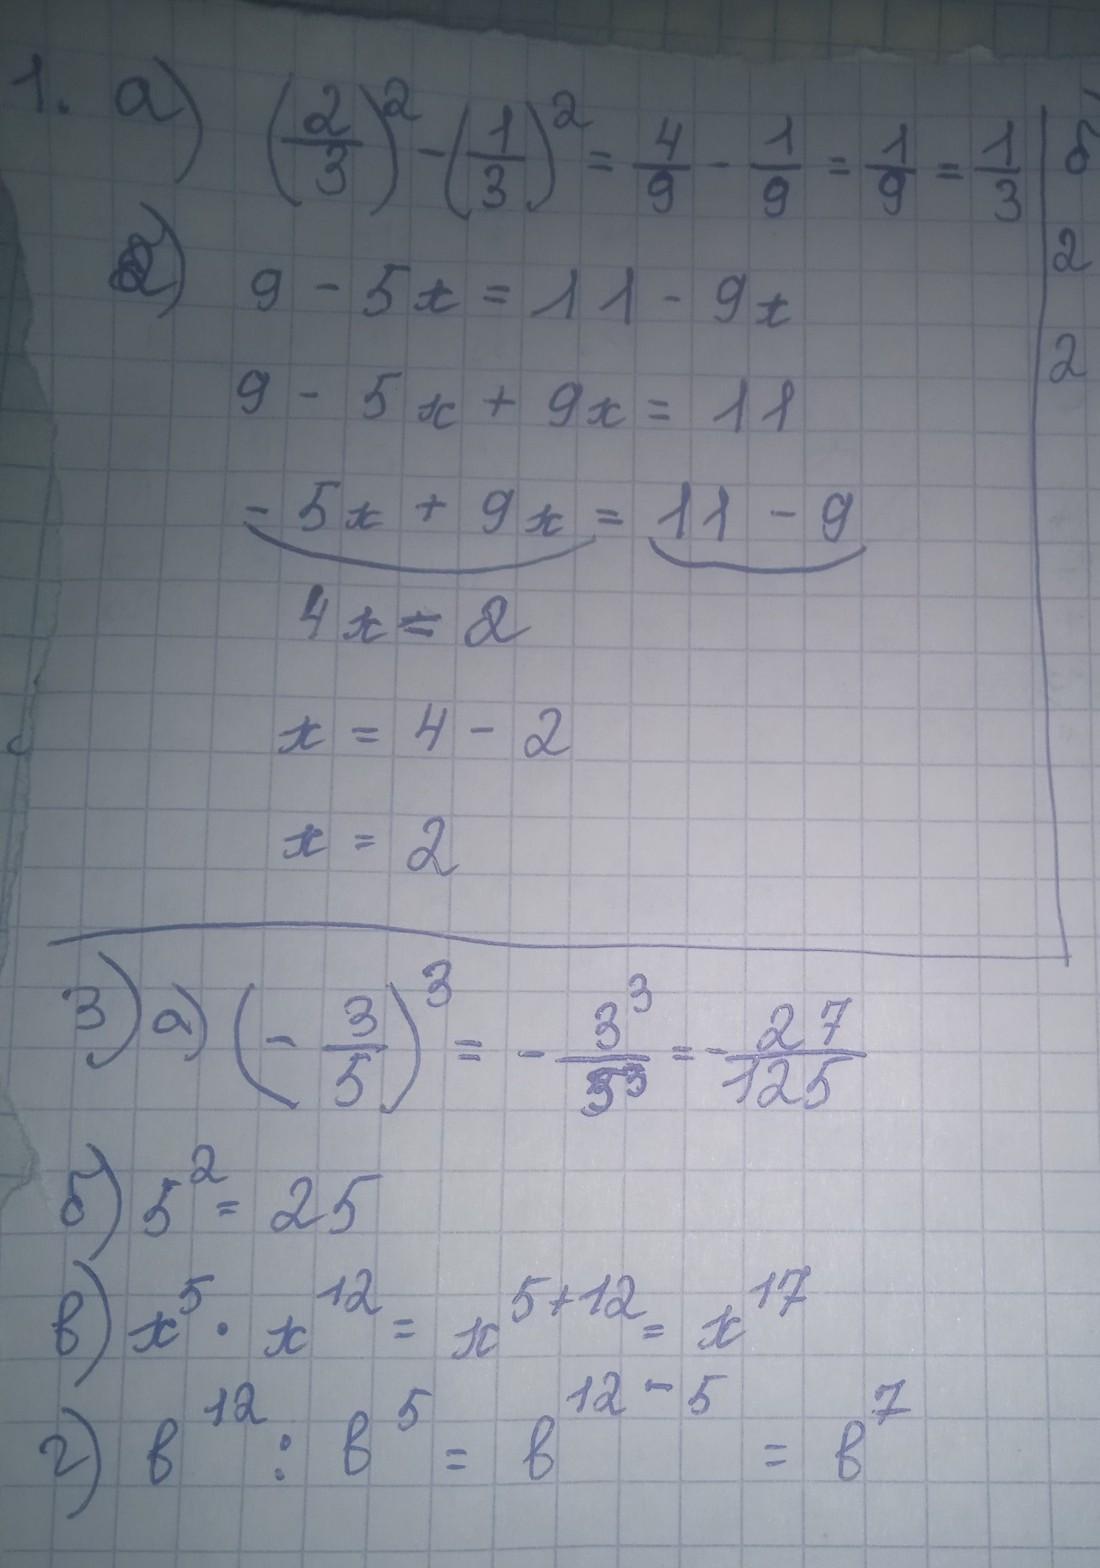 1. а) (2/3)² - (1/3)² = 4/9 - 1/9 = 1/9 = 1/3
2) 9 - 5x = 11 - 9x
9 - 5x + 9x = 11
- 5x + 9x = 11 - 9
4x = 2
x = 4 - 2
x = 2
б
2
2
3) а) (- 3/5)³ = - 3³/5³ = - 27/125
б) 5² = 25
в) x⁵ · x¹² = x⁵⁺¹² = x¹⁷
г) в¹² : в⁵ = в¹²⁻⁵ = в⁷